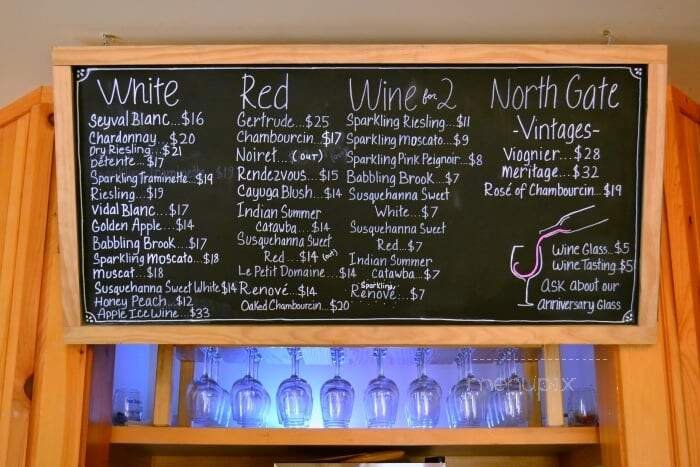 White
Seyval Blanc...$16
Chardonnay...$20
Dry Riesling...$21
Détente...$17
Sparkling Traminette...$19
Riesling...$19
Vidal Blanc...$17
Golden Apple...$14
Babbling Brook...$17
Sparkling Moscato...$18
Muscat...$18
Susquehanna Sweet White $14
Honey Peach...$12
Apple Ice Wine...$33
Red
Gertrude...$25
Chambourcin...$17
Noiret...(OUT)
Rendezvous...$15
Cayuga Blush...$14
Indian Summer
Catawba...$14
Susquehanna Sweet
Red...$14
Le Petit Domaine...$14
Renové...$14
Oaked Chambourcin...$20
Wine for 2
Sparkling Riesling...$11
Sparkling Moscato...$9
Sparkling Pink Peignoir...$8
Babbling Brook...$7
Susquehanna Sweet
White...$7
Susquehanna Sweet
Red...$7
Indian Summer
Catawba...$7
Sparkling
Renové...$7
North Gate
-Vintages-
Viognier...$28
Meritage...$32
Rosé of Chambourcin...$19
Wine Glass...$5
Wine Tasting $5
Ask about our
anniversary Glass
menupix